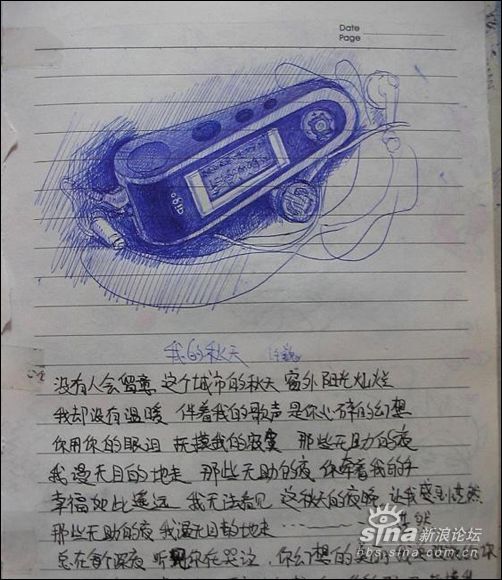 Date
Page
aigo
我的秋天 许巍
没有人会留意 这个城市的秋天 窗外阳光灿烂
我却没有温暖 伴着我的歌声 是你心碎的幻想
你用你的眼泪 抚摸我的寂寞 那些无助的夜
我漫无目的地走 那些无助的夜 你牵着我的手
幸福如此遥远 我无法看见 这秋天的夜晚 让我感到茫然
那些无助的夜 我漫无目的地走
总在每个深夜 听见你在哭泣 你幻想的美好
sina新浪论坛
bbs.sina.com.cn